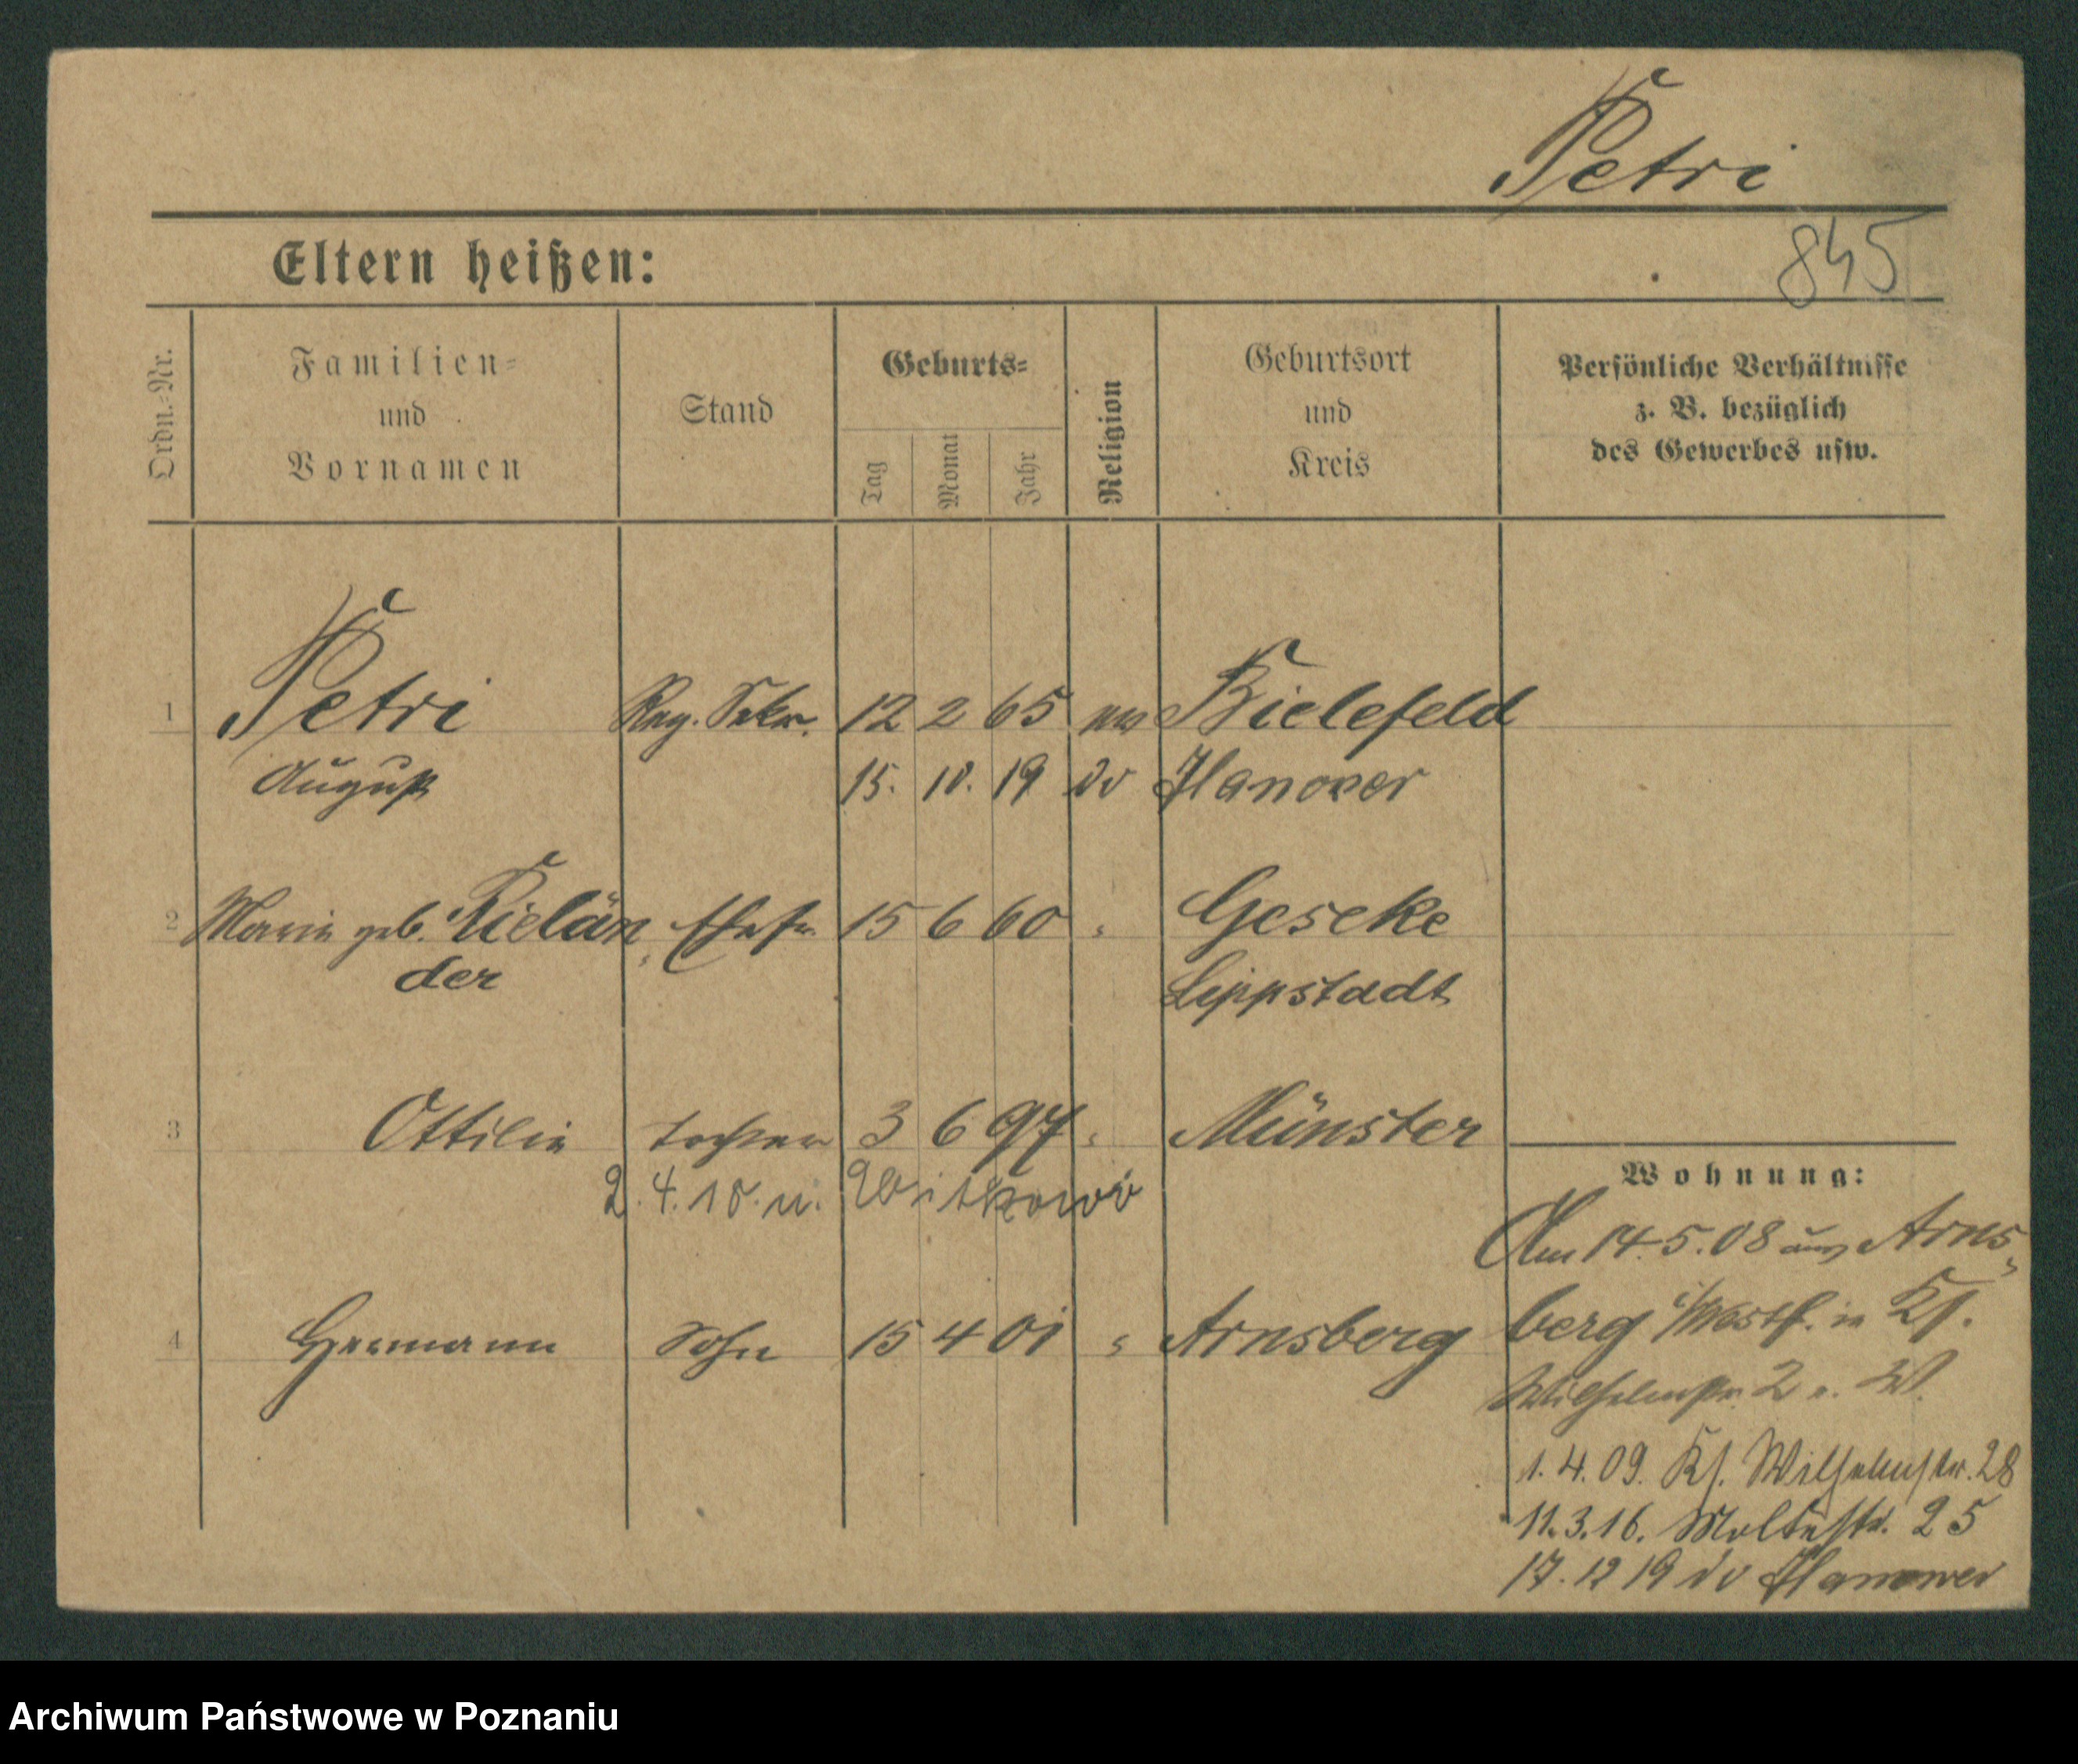 Petri
845
Eltern heißen:
Ordn.-Nr.
Familien-
und
Vornamen
Stand
Geburts-
Tag
Monat
Jahr
Religion
Geburtsort
und
Kreis
Persönliche Verhältnisse
z. B. bezüglich
des Gewerbes usw.
1 Petri Reg. Sekr. 12 2 65 Bielefeld
August 15. 10. 19 Hanover
2 Marie geb. Kielän- Ehefr. 15 6 60 " Geseke
der Lippstadt
3 Ottilie Tochter 3 6 97 " Münster
2. 4. 18. n. Witkowo
4 Hermann Sohn 15 4 01 " Arnsberg
Wohnung:
Am 14.5.08 aus Arns-
berg i/Westf. in
Wilhelmstr. 2
1. 4. 09. Wilhelmstr. 28
11.3.16. Moltkestr. 25
17. 12 19 Hannover
Archiwum Państwowe w Poznaniu